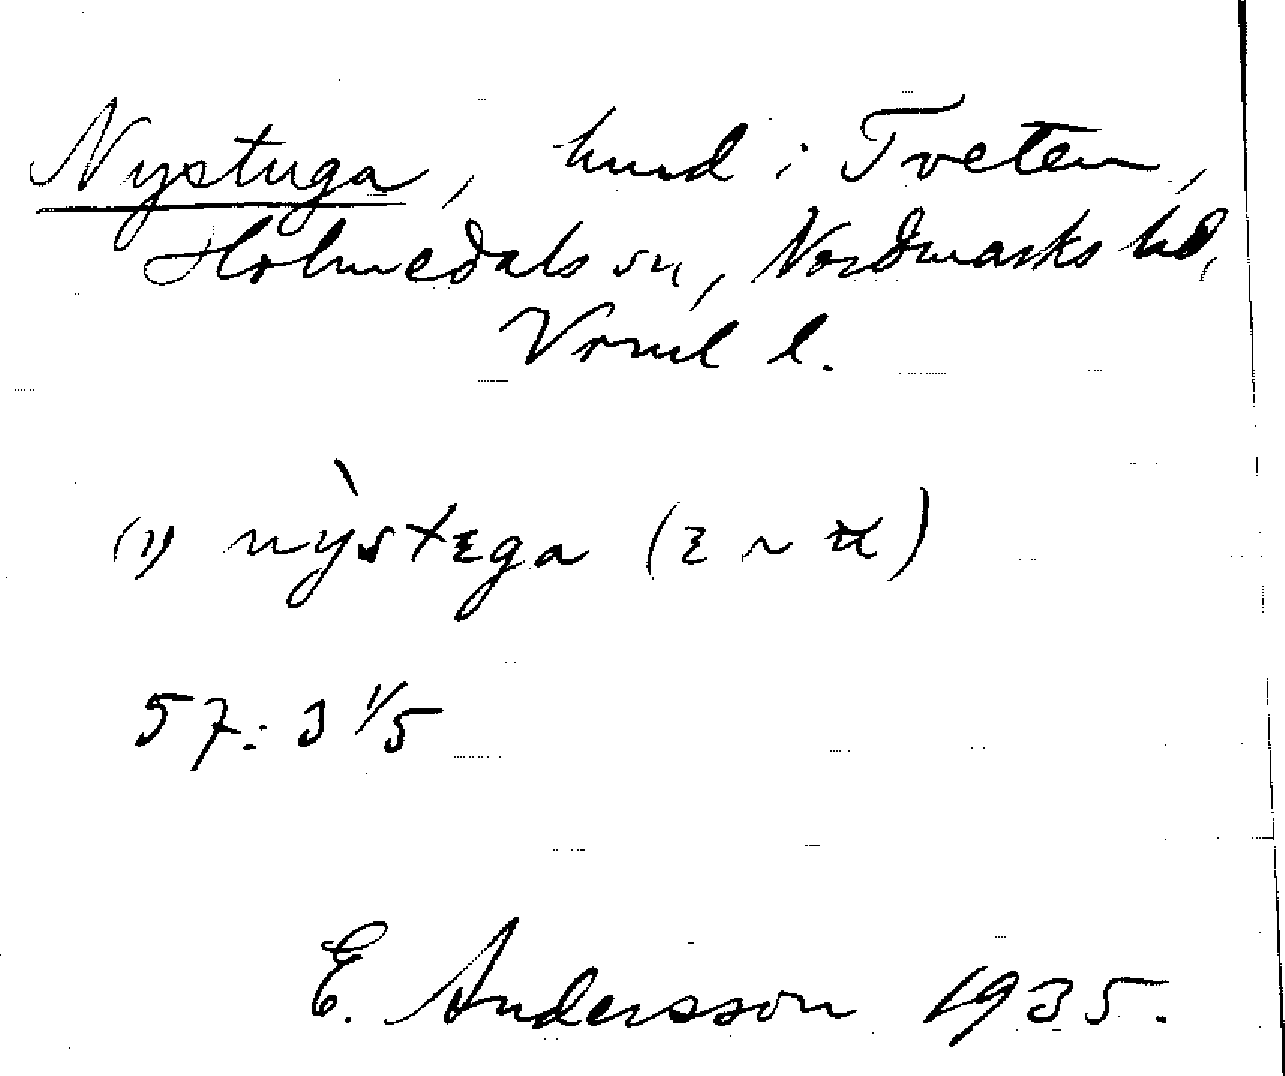 Nystuga, hmd i Tveten,
Holmedals sn, Nordmarks hd,
Vrml l.
(1) nỳstɛga (ɛ ~ ʉ)
57: 3 1/5
E. Andersson 1935.